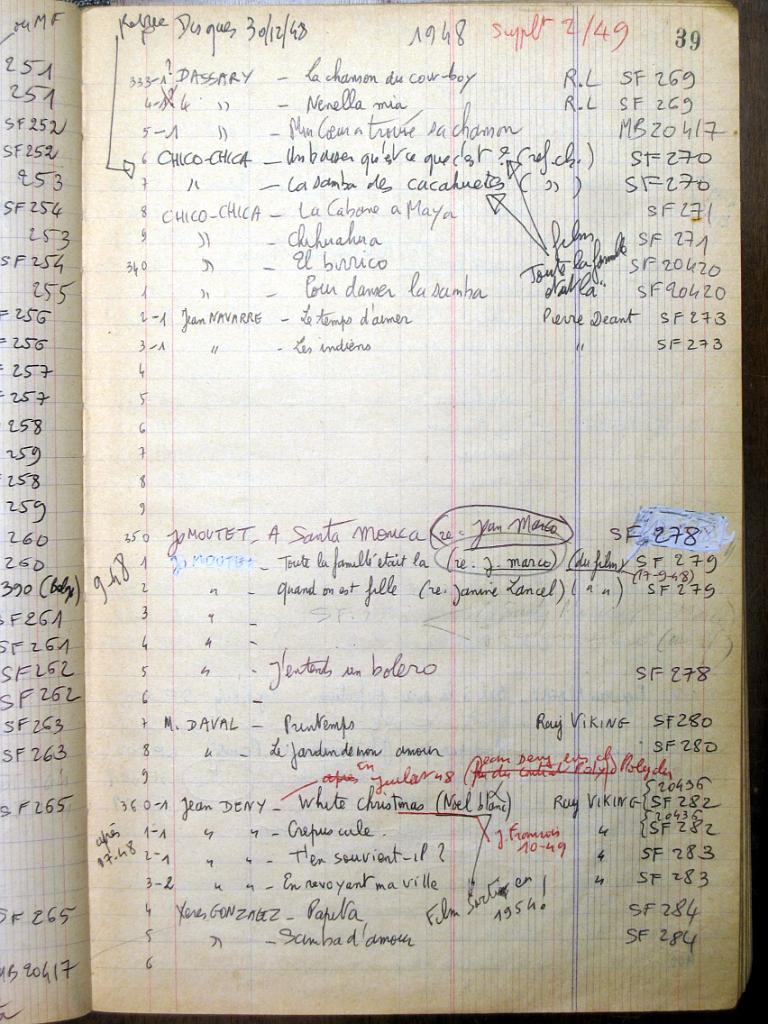 ou MF
251
251
SF 252
SF 252
253
SF 254
253
SF 254
255
F 256
256
257
257
258
259
258
259
260
260
390 (
SF 261
SF 261
SF 262
SF 262
SF 263
SF 263
SF 265
SF 265
MB 20417
Disques 30/12/48 1948 Supplt 2/49 39
333-1 ? DASSARY - La chanson du cow-boy R.L SF 269
4 " - Nenella mia R.L SF 269
5-1 " - Mon Cœur a trouvé sa chanson MB 20417
6 CHICO-CHICA - Un baiser qu'est ce que c'est ? (ref. ch.) SF 270
7 " - La samba des cacahuetes ( " ) SF 270
8 CHICO-CHICA - La Cabane a Maya SF 271
9 " - Chihuahua SF 271
340 " - El burrico SF 20420
1 " - Pour danser la samba SF 20420
film "Toute la famille était là"
2-1 Jean NAVARRE - Le temps d'aimer Pierre Deant SF 273
3-1 " - Les indiens " SF 273
4
5
6
7
8
9
350 Jo MOUTET - A Santa Monica (re. Jean Marco) SF 278
9-48
1 Jo MOUTET - Toute la famille était la (re. J. marco) (du film) SF 279
(17-9-48)
2 " - quand on est fille (re. Janine Lancel) ( " " ) SF 279
3 " -
4 " -
5 " - J'entends un bolero SF 278
6 -
7 M. DAVAL - Printemps Ray VIKING SF 280
8 " - Le Jardin de mon amour SF 280
9
En Juillet 48 Polydor
360-1 Jean DENY - White christmas (Noel blanc) Ray VIKING { 20436 SF 282
après 17-48
1-1 " " - Crepuscule. " { 20436 SF 282
J. François 10-49
2-1 " " - T'en souvient-il ? " SF 283
3-2 " " - En revoyant ma ville " SF 283
Film Sorti en 1954 !
4 Xeres GONZALEZ - Papeva SF 284
5 " - Samba d'amour SF 284
6